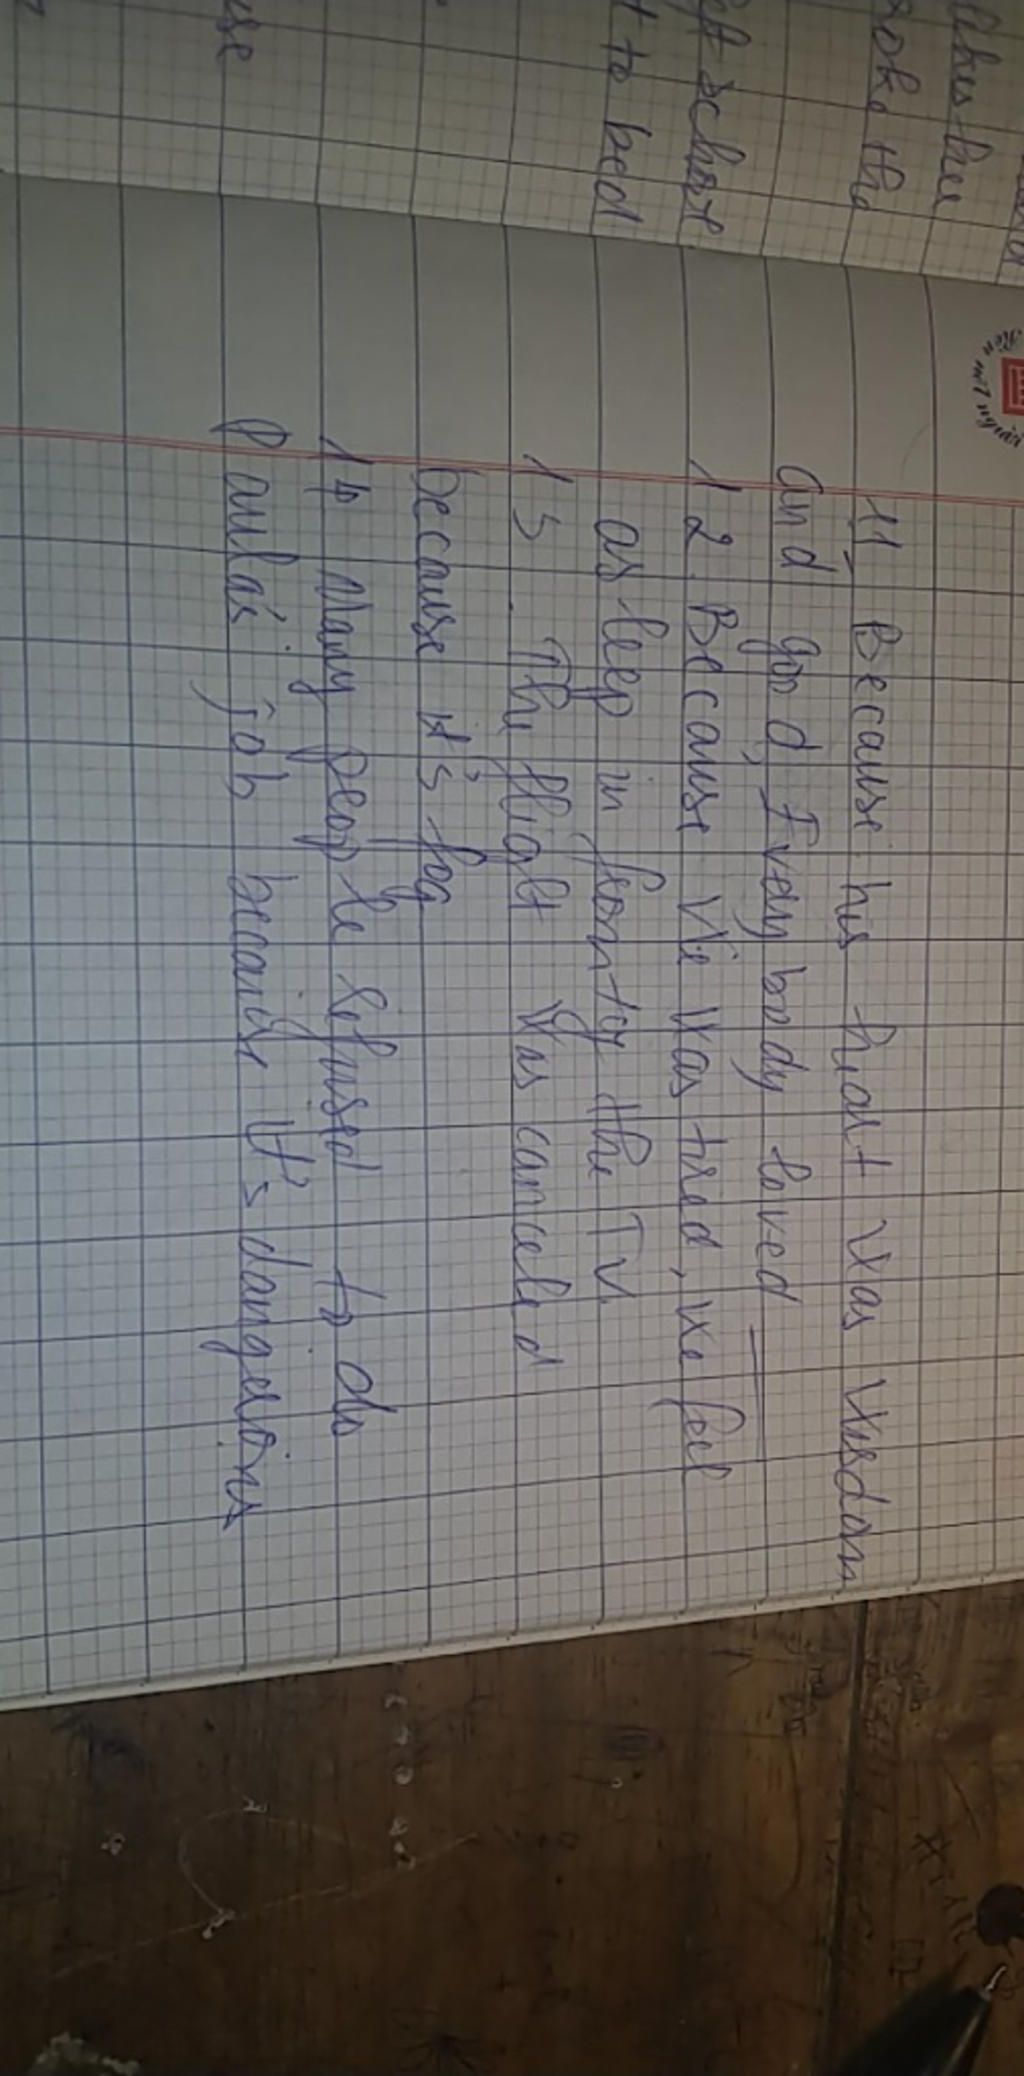 t to bed
use
11, Because his heart was wisdom
and good, Everybody loved
12. Because we was tired, we feel
as leep in front of the TV.
13. The flight was canceled
because it's fog
14 Many people refused to do
Paula's job because it's dangerous